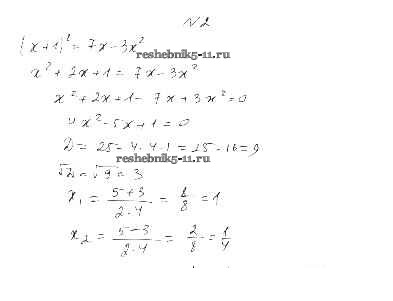 N2
(x+1)² = 7x-3x²
reshebnik5-11.ru
x² + 2x+1 = 7x-3x²
x² + 2x+1 - 7x + 3x² = 0
4x²-5x+1 = 0
D = 25-4·4·1 = 25-16 = 9
reshebnik5-11.ru
√D = √9 = 3
x₁ = (5+3)/(2·4) = 8/8 = 1
x₂ = (5-3)/(2·4) = 2/8 = 1/4